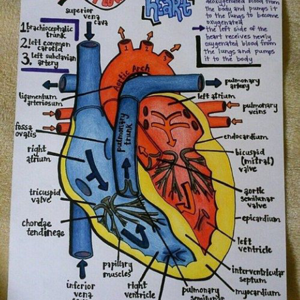 Heart
deoxygenated blood from
the body and pumps it
to the lungs to become
oxygenated
the left side of
the heart receives newly
oxygenated blood from
the lungs and pumps
it to the body
1. brachiocephalic
trunk
2. left common
carotid
3. left subclavian
artery
superior
vena
cava
aortic arch
ligamentum
arteriosum
pulmonary
artery
left atrium
pulmonary
veins
fossa
ovalis
pulmonary
trunk
endocardium
right
atrium
bicuspid
(mitral)
valve
tricuspid
valve
aortic
semilunar
valve
epicardium
chordae
tendineae
left
ventricle
interventricular
septum
papillary
muscles
inferior
vena
right
ventricle
pulmonary
semilunar
myocardium